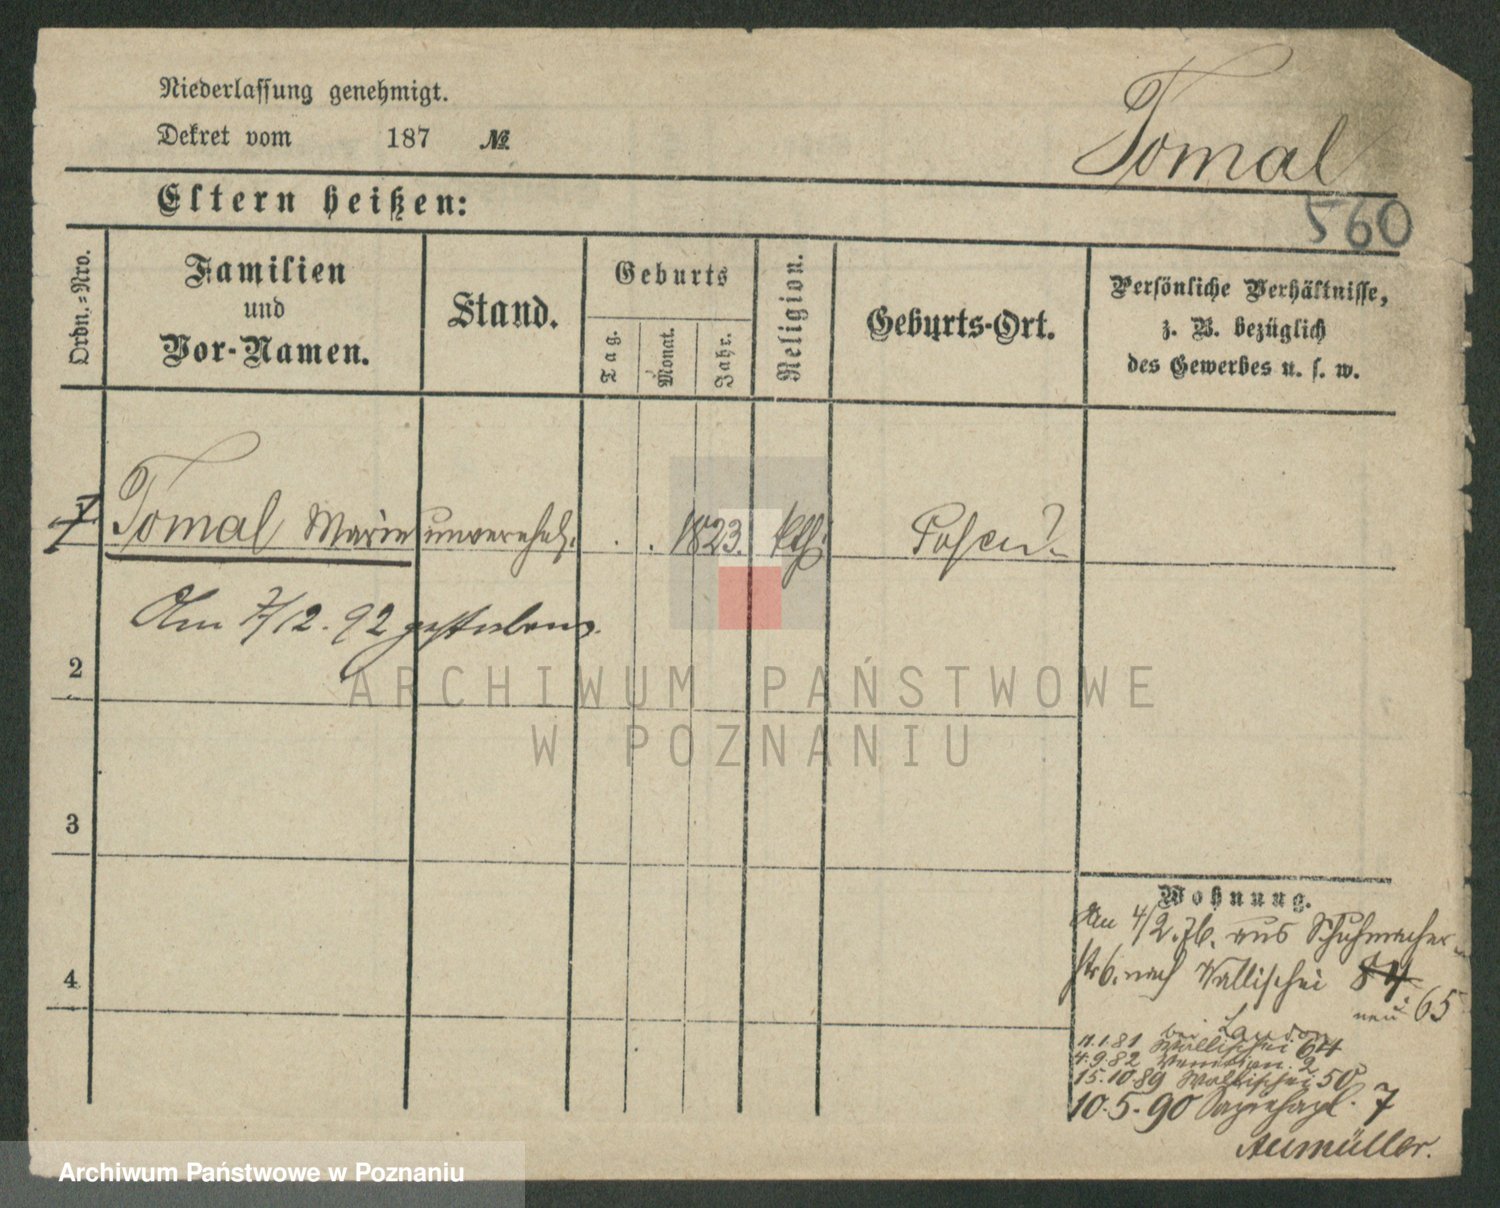 Niederlassung genehmigt.
Dekret vom 187 №
Tomal
560
Eltern heißen:
Ordn.=Nro.
Familien
und
Vor-Namen.
Stand.
Geburts
Tag.
Monat.
Jahr.
Religion.
Geburts-Ort.
Persönliche Verhältnisse,
z. B. bezüglich
des Gewerbes u. s. w.
1 Tomal Marie unverehel. . . 1823. kth. Posen?
Am 7/12. 92 gestorben.
2
3
4
Wohnung.
Am 4/2.76. aus Schuhmacher-
str 6. nach Wallischei 84
neu 65
bei
4.1.81 Wallischei 64
4.9.82 Venetian. 2
15.10.89 Wallischei 50
10.5.90 7
Aumüller.
ARCHIWUM PAŃSTWOWE
W POZNANIU
Archiwum Państwowe w Poznaniu